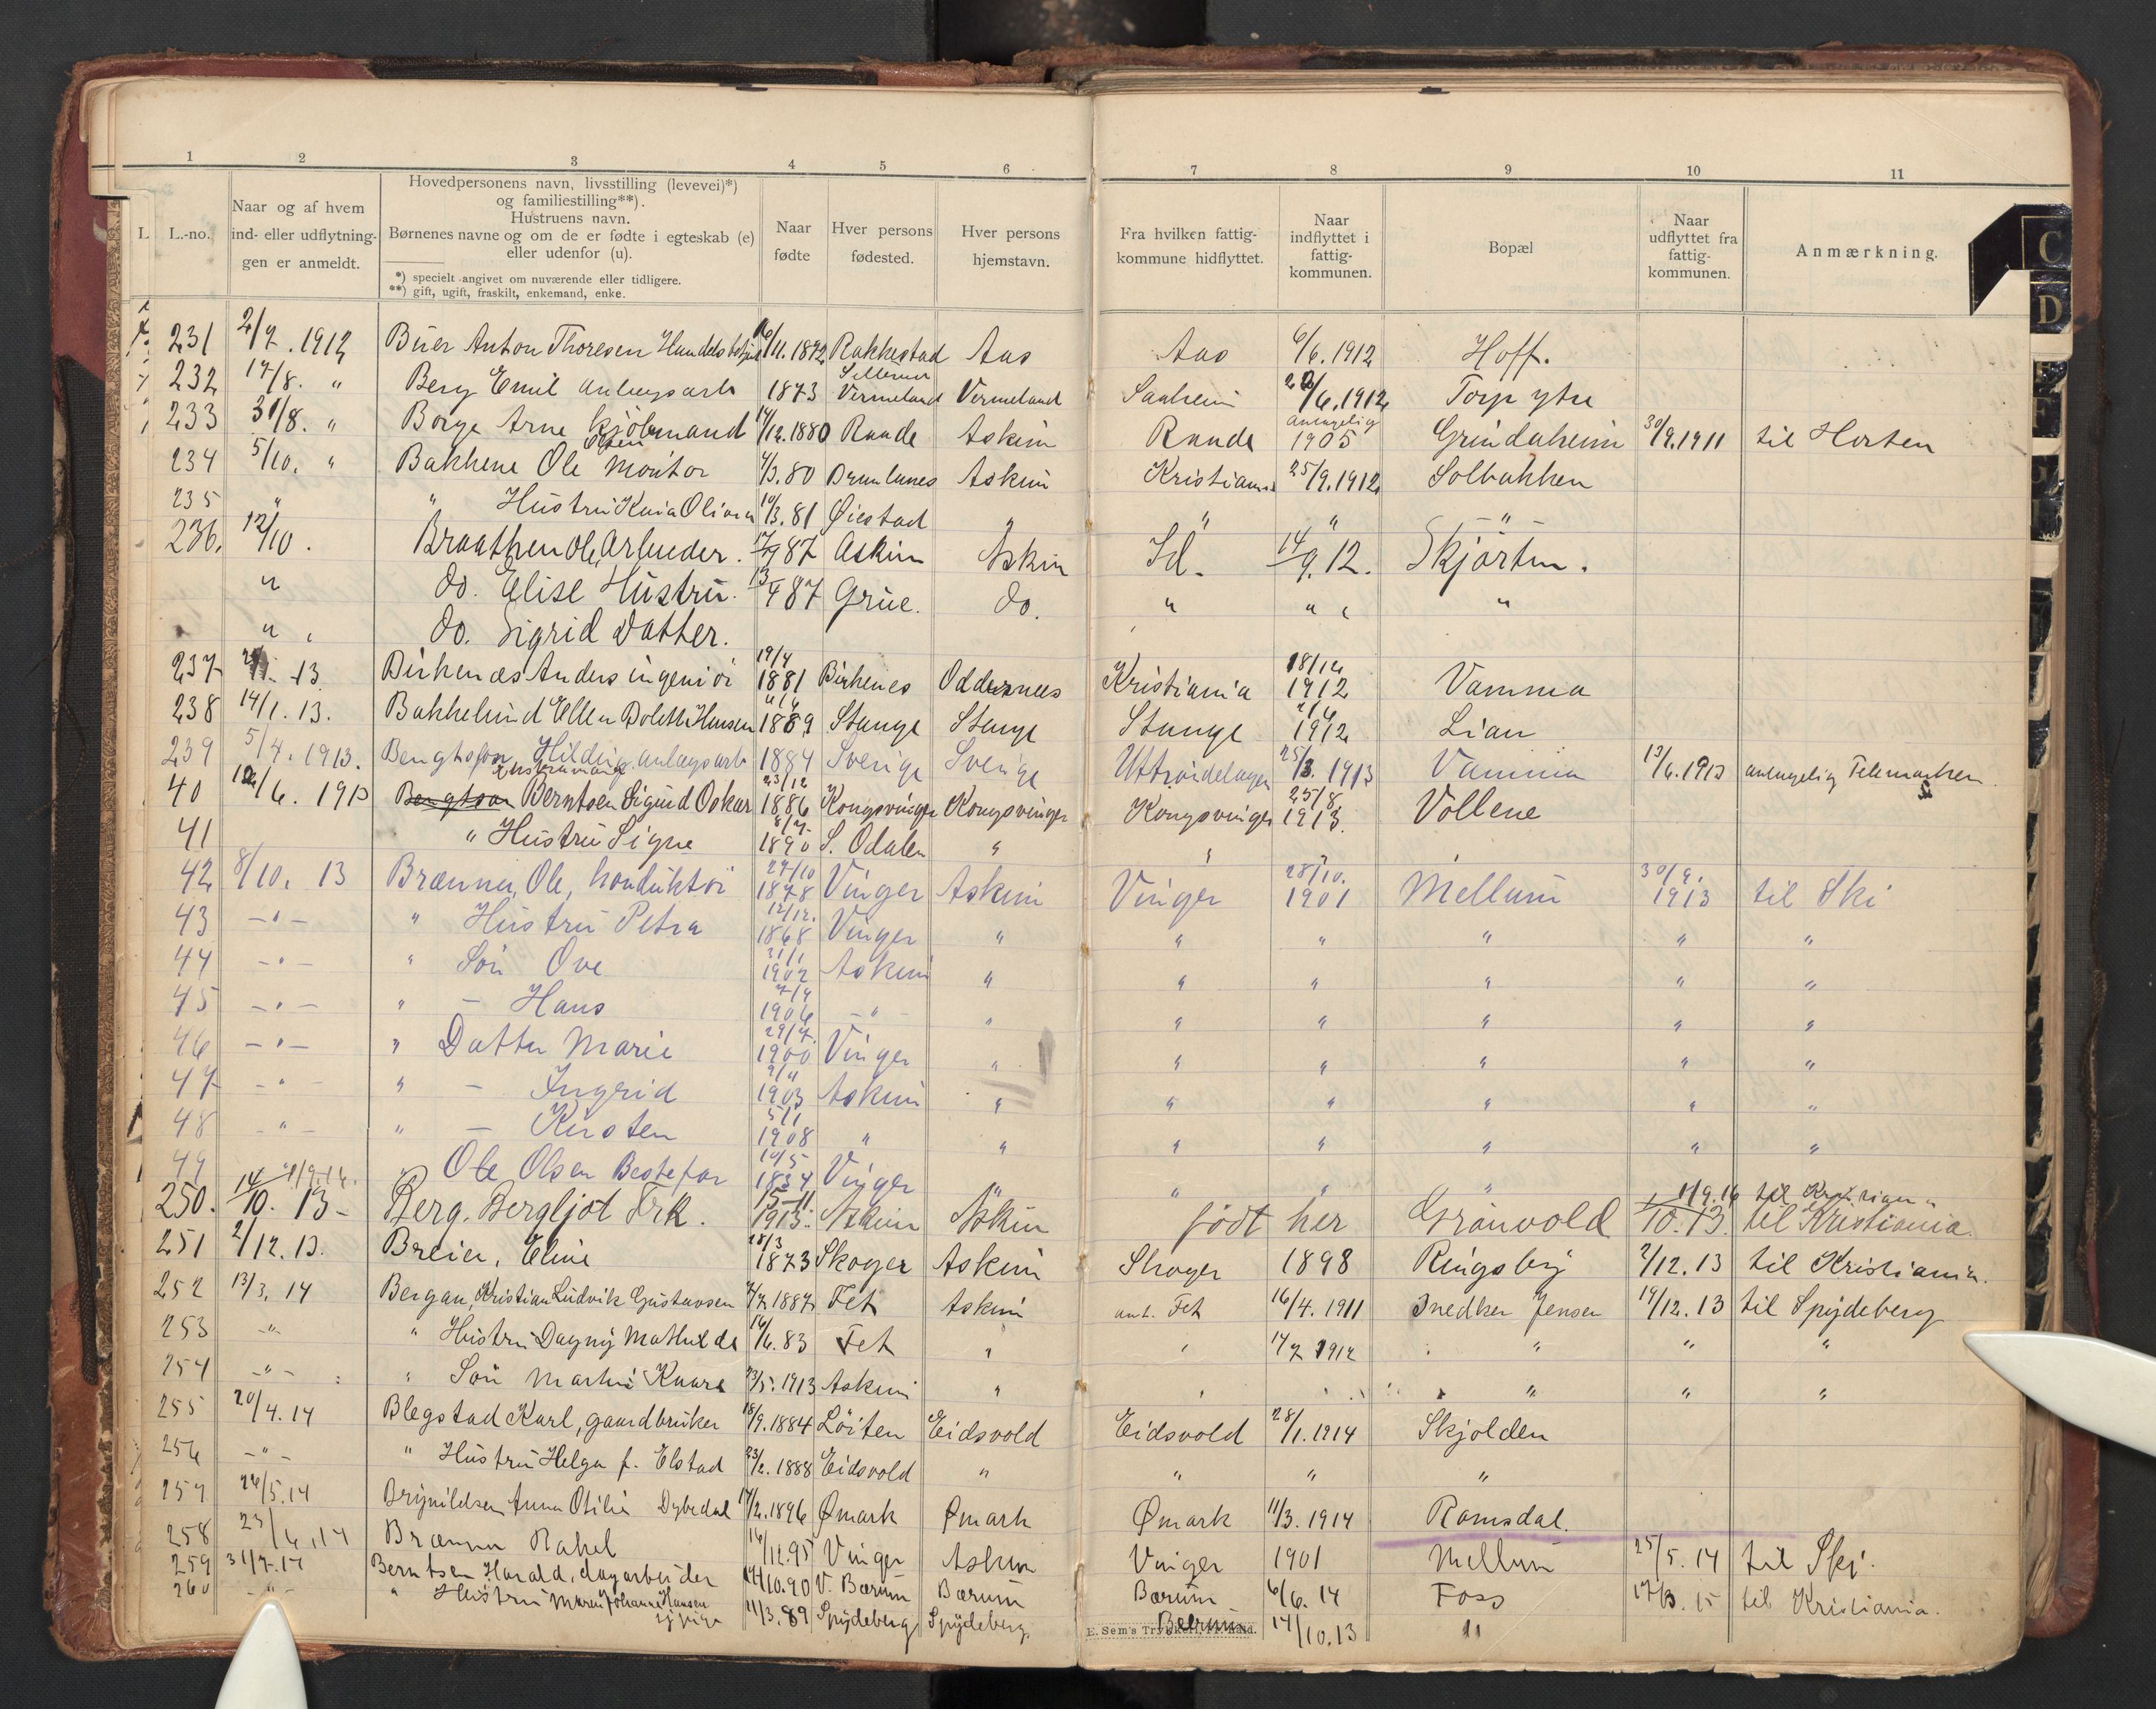 1 2 3 4 5 6 7 8 9 10 11
L. L.-no. Naar og af hvem ind- eller udflytningen er anmeldt. Hovedpersonens navn, livsstilling (levevei)*) og familiestilling**). Hustruens navn. Børnenes navne og om de er fødte i egteskab (e) eller udenfor (u). Naar fødte Hver persons fødested. Hver persons hjemstavn. Fra hvilken fattigkommune hidflyttet. Naar indflyttet i fattigkommunen. Bopæl Naar udflyttet fra fattigkommunen. Anmærkning.
*) specielt angivet om nuværende eller tidligere.
**) gift, ugift, fraskilt, enkemand, enke.
C
D
231 2/7. 1912 Buer Anton Thoresen /11.1892 Rakkestad Aas Aas 6/6. 1912 Hoff.
232 17/8. " Berg Emil anlægsarb 1873 Vermeland Vermeland Saaheim /6.1912 Torp ytre
233 31/8. " Borge Arne Kjöbmand 14/12.1880 Raade Askim Raade antagelig 1905 Grindaheim 30/9.1911 til Horten
234 5/10. " Bakkene Ole Olsen Montör 4/3.80 Askim Kristiania 25/9.1912 Solbakken
235 " " Hustru Olivia 10/3.81 Øiestad " " " -"-
236. 12/10. Braathen Ole, Arbeider. 17/9 87 Askim Askim Id. 14/9.12. Skjörten.
" do. Elise Hustru. 13/4 87 Grue. do. " " "
" do. Sigrid Datter.
237 /1. 13 Birkenæs Anders ingeniör 19/4 1881 Birkenes Oddernæs Kristiania 18/12 1912 Vamma
238 14/1. 13. Bakkelund Ellen Bolette Hansen 1889 Stange Stange Stange 1912 Lian
239 5/4. 1913. Bengtsson Hilding anlægsarb 1884 Sverige Sverige Uttröndelagen 25/3. 1913 Vamma 13/6.1913 antagelig Telemarken
40 12/6. 1913 Bengtson Berntsen Sigurd Oskar 23/12 1886 Kongsvinger Kongsvinger Kongsvinger 25/8 1913. Vollene
41 " Hustru Signe 8/7 1890 S. Odalen "
42 8/10. 13 Brænna, Ole, konduktör 27/10 1878 Vinger Askim Vinger 28/10. 1901 Mellum 30/9. 1913 til Ski
43 -"- " Hustru Petra 12/12. 1868 Vinger " " " " " "
44 -"- " Sön Ove 31/1 1902 Askim " " " " " "
45 -"- " - Hans 7/4 1906 -"- " " " " " "
46 -"- " Datter Marie 29/7. 1900 Vinger " " " " " "
47 -"- " - Ingrid 9/11 1903 Askim " " " " " "
48 -"- " - Kirsten 5/1 1908 " " " " " " "
49 " Ole Olsen Bestefar 10/5 1834 Vinger " " " " 11/9.16 til Kristiania
250. 14/10. 13- Berg, Bergljot Frk. 15-11. 1913. Askim Askim födt her Grönvold /10.13. til Kristiania.
251 2/12. 13. Breier, Eline 28/3 1873 Skoger Askim Skoger 1898 Ringsby 2/12. 13 til Kristiania.
252 13/3. 14 Bergan, Kristian Ludvik Gustavsen /7.1887 Fet Askim ant. Fet 16/4. 1911 Snedker Jensen 19/12. 13 til Spydeberg
253 -"- " Hustru Dagny Mathilde 16/6. 83 Fet " " 14/7 1912 " " "
254 -"- " Sön Martin Kaare 23/5. 1913 Askim " " " " "
255 20/4. 14 Blegstad Karl, gaardbruker 18/9. 1884 Löiten Eidsvold Eidsvold 28/1. 1914 Skjolden
256 -"- " Hustru Helga f. Elstad 23/2. 1888 Eidsvold " " " "
257 26/5.14 Brynildsen Anna Otilie Dybedal 17/2. 1896 Ømark Ømark Ømark 11/3. 1914 Ramsdal.
258 23/6.14 Brænna Rakel 16/12.95 Vinger Askim Vinger 1901 Mellum 25/5. 14 til Ski.
259 31/7.14 Berntsen Harald, dagarbeider 14/10.90 V. Bærum Bærum Bærum 6/6. 14 Foss 17/3. 15 til Kristiania.
260 -"- " Hustru Maren Johanne Hansen 11/3. 89 Spydeberg Spydeberg. Bærum 14/10.13 "
E. Sem's Trykkeri, Fr.hald.